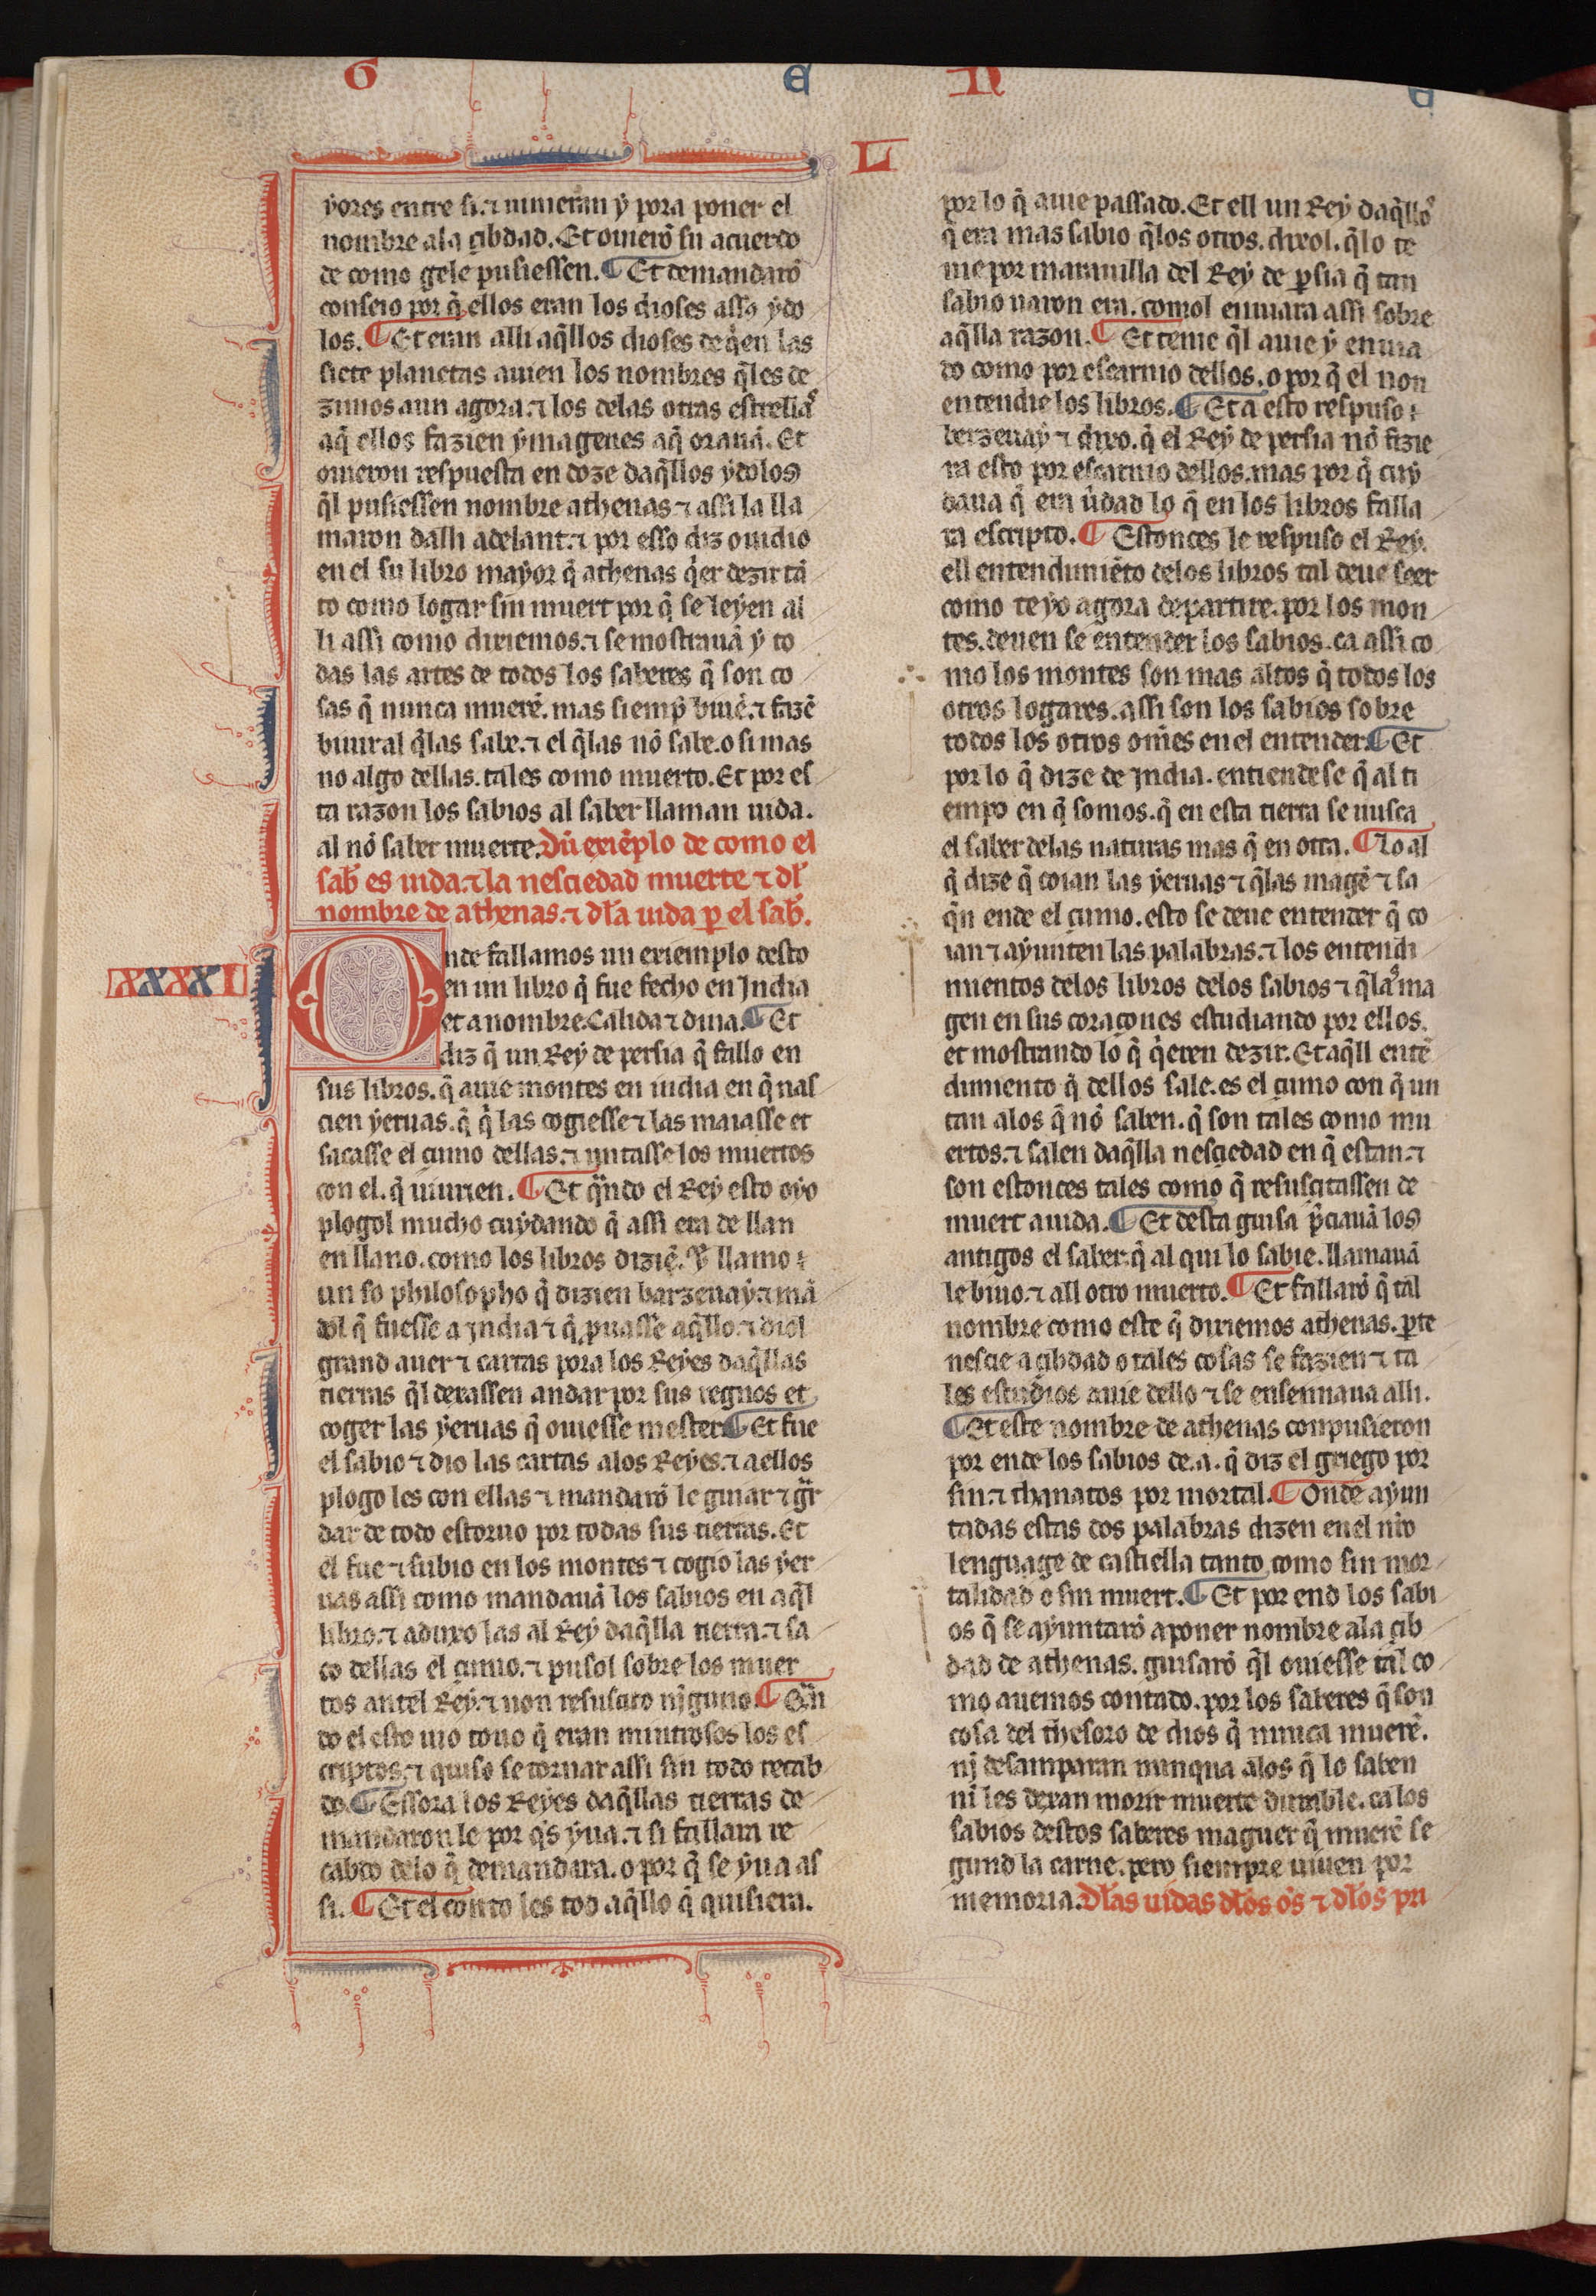 G E N E
L
yores entre si. ⁊ uinieran y pora poner el
nombre ala çibdad. Et ouierõ su acuerdo
de como gele pusiessen. ¶ Et demandarõ
conseio por q̃ ellos eran los dioses asso ydo
los. ¶ Et eran alli aq̃llos dioses de q̃en las
siete planetas auien los nombres q̃les de
zimos aun agora. ⁊ los delas otras estrellaˢ
aq̃ ellos fazien ymagenes aq̃ orauã. Et
ouieron respuesta en doze daq̃llos ydolos
q̃l pusiessen nombre athenas ⁊ assi la lla
maron dalli adelant. ⁊ por esso diz ouidio
en el su libro mayor q̃ athenas q̃er dezir tã
to como logar sin muert por q̃ se leyen al
li assi como diriemos. ⁊ se mostrauã y to
das las artes de todos los saberes q̃ son co
sas q̃ nunca muerẽ. mas siemp̃ biuẽ. ⁊ fazẽ
biuir al q̃las sabe. ⁊ el q̃las nõ sabe. o si mas
no algo dellas. tales como muerto. Et por es
ta razon los sabios al saber llaman uida.
al nõ saber muerte. Dũ exiẽplo de como el
sab̃ es uida. ⁊ la nesciedad muerte ⁊ dl̃
nombre de athenas. ⁊ dl̃a uida p̱ el sab̃.
XXXXI
Onde fallamos un exiemplo desto
en un libro q̃ fue fecho en India
et a nombre. Calida ⁊ dina. ¶ Et
diz q̃ un Rey de persia q̃ fallo en
sus libros. q̃ auie montes en india en q̃ nas
cien yeruas. q̃ q̃ las cogiesse ⁊ las maiasse et
sacasse el çumo dellas. ⁊ untasse los muertos
con el. q̃ uiurien. ¶ Et q̃ndo el Rey esto oyo
plogol mucho cuydando q̃ assi era de llan
en llano. como los libros dizẽ. Y llamo
un so philosopho q̃ dizien barzenay. ⁊ mã
dol q̃ fuesse a India ⁊ q̃ p̱uasse aq̃llo. ⁊ diol
grand auer ⁊ cartas pora los Reyes daq̃llas
tierras q̃l dexassen andar por sus regnos et
coger las yeruas q̃ ouiesse mester. ¶ Et fue
el sabio ⁊ dio las cartas alos Reyes. ⁊ a ellos
plogo les con ellas ⁊ mandarõ le guiar ⁊ gũr
dar de todo estoruo por todas sus tierras. Et
el fue ⁊ subio en los montes ⁊ cogio las yer
uas assi como mandauã los sabios en aq̃l
libro. ⁊ aduxo las al Rey daq̃lla tierra. ⁊ sa
co dellas el çumo. ⁊ pusol sobre los muer
tos antel Rey. ⁊ non resuscito njguno. ¶ Qũn
do el esto uio touo q̃ eran mintrosos los es
criptos. ⁊ quiso se tornar assi sin todo recab
do. ¶ Essora los Reyes daq̃llas tierras de
mandaron le por q̃ s yua. ⁊ si fallara re
cabdo delo q̃ demandara. o por q̃ se yua as
si. ¶ Et el conto les tod aq̃llo q̃ quisiera.
por lo q̃ auie passado. Et ell un Rey daq̃lloˢ
q̃ era mas sabio q̃los otros. dixol. q̃lo te
nie por marauilla del Rey de p̱sia q̃ tan
sabio uaron era. comol enuiara assi sobre
aq̃lla razon. ¶ Et tenie q̃l auie y enuia
do como por escarnio dellos. o por q̃ el non
entendie los libros. ¶ Et a esto respuso
berzenay ⁊ dixo. q̃ el Rey de persia nõ fizie
ra esto por escarnio dellos. mas por q̃ cuy
daua q̃ era ũdad lo q̃ en los libros falla
ra escripto. ¶ Estonces le respuso el Rey.
ell entendimiẽto delos libros tal deue seer
como te yo agora departire. por los mon
tes. deuen se entender los sabios. ca assi co
mo los montes son mas altos q̃ todos los
otros logares. assi son los sabios sobre
todos los otros om̃es en el entender. ¶ Et
por lo q̃ dize de India. entiendese q̃ al ti
empo en q̃ somos. q̃ en esta tierra se uusca
el saber delas naturas mas q̃ en otra. ¶ Lo al
q̃ dize q̃ coian las yeruas ⁊ q̃las magẽ ⁊ sa
q̃n ende el çumo. esto se deue entender q̃ co
ian ⁊ ayunten las palabras. ⁊ los entendi
mientos delos libros delos sabios ⁊ q̃laˢ ma
gen en sus coraçones estudiando por ellos.
et mostrando lo q̃ q̃eren dezir. Et aq̃ll entẽ
dimiento q̃ dellos sale. es el çumo con q̃ un
tan alos q̃ nõ saben. q̃ son tales como mu
ertos. ⁊ salen daq̃lla nesciedad en q̃ estan. ⁊
son estonces tales como q̃ resuscitassen de
muert a uida. ¶ Et desta guisa p̃ciauã los
antigos el saber. q̃ al qui lo sabie. llamauã
le biuo. ⁊ all otro muerto. ¶ Et fallarõ q̃ tal
nombre como este q̃ diriemos athenas. p̱te
nescie a çibdad o tales cosas se fazien ⁊ ta
les estudios auie dello ⁊ se ensennaua alli.
¶ Et este nombre de athenas conpusieron
por ende los sabios de. a. q̃ diz el griego por
sin. ⁊ thanatos por mortal. ¶ Onde ayun
tadas estas dos palabras dizen enel nr̃o
lenguage de castiella tanto como sin mor
talidad o sin muert. ¶ Et por end los sabi
os q̃ se ayuntarõ a poner nombre ala çib
dad de athenas. guisarõ q̃l ouiesse tal co
mo auemos contado. por los saberes q̃ son
cosa del thesoro de dios q̃ nunca muerẽ.
nj desamparan nunqua alos q̃ lo saben
ni les dexan morir muerte durable. ca los
sabios destos saberes maguer q̃ muerẽ se
gund la carne. pero siempre uiuen por
memoria. Dl̃as uidas dl̃os o̊s ⁊ dl̃os pri